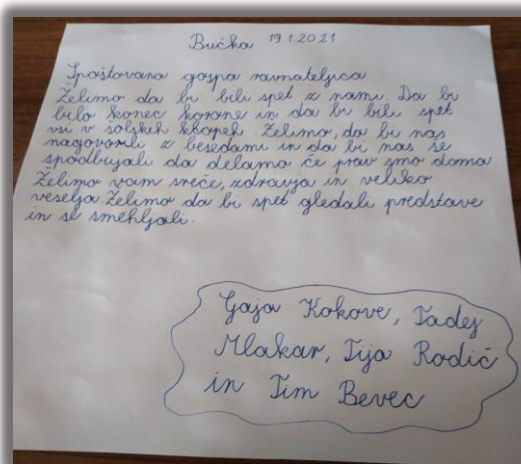 Bučka 19 1 2021
Spoštovana gospa ravnateljica
Želimo da bi bili spet z nami. Da bi
bilo konec korone in da bi bili spet
vsi v šolskih klopeh. Želimo, da bi nas
nagovorili z besedami in da bi nas še
spodbujali da delamo če prav smo doma.
Želimo vam sreče, zdravja in veliko
veselja. Želimo da bi spet gledali predstave
in se smehljali.
Gaja Kokove, Tadej
Mlakar, Tija Rodič
in Tim Bevec